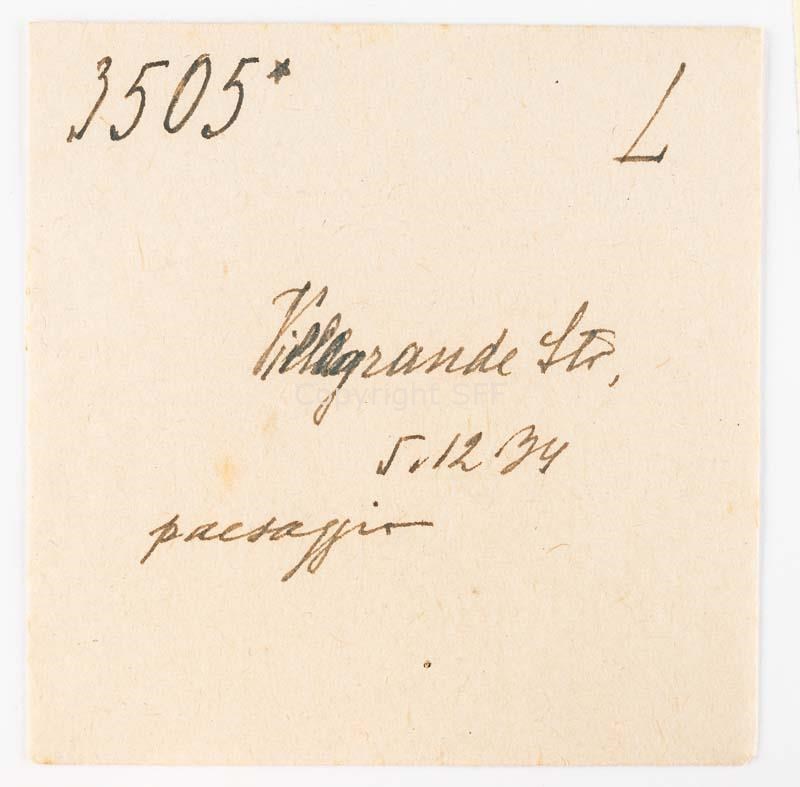 3505* L
Villagrande Str,
Copyright SFF
5.12 34
paesaggio